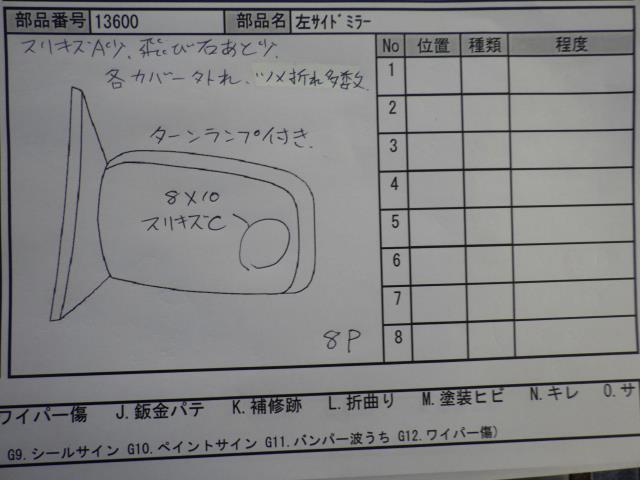 部品番号 13600 部品名 左サイドﾞミラー
スリキズA少、飛び石あと少
各カバー外れ、ツメ折れ多数
ターンランプ付き
8×10
スリキズC
8P
No 位置 種類 程度
1
2
3
4
5
6
7
8
ワイパー傷 J.鈑金パテ K.補修跡 L.折曲り M.塗装ヒビ N.キレ O.サ
G9.シールサイン G10.ペイントサイン G11.バンパー波うち G12.ワイパー傷)